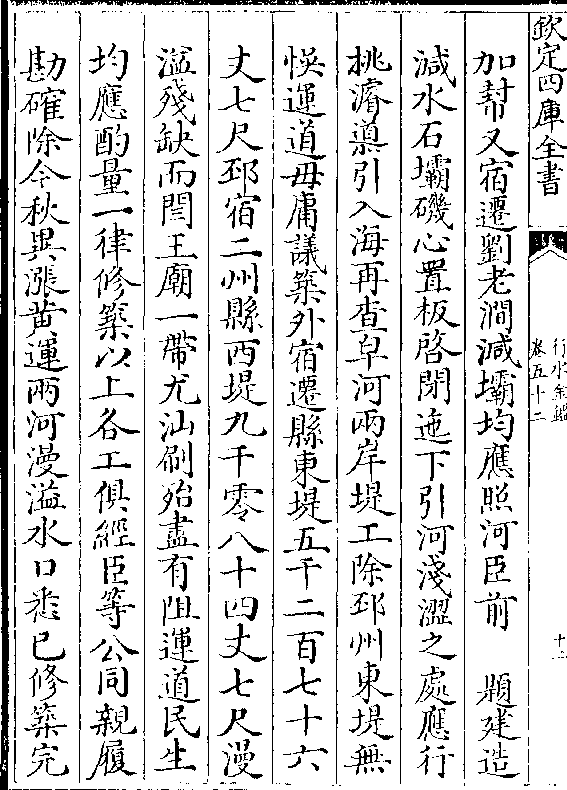 欽定四庫全書
行水金鑑
卷五十二
十二
加幇又宿遷劉老澗減壩均應照河臣前　題建造
減水石壩磯心置板啓閉迤下引河淺澀之處應行
挑濬導引入海再查皁河兩岸堤工除邳州東堤無
悞運道毋庸議築外宿遷縣東堤五千二百七十六
丈七尺邳宿二州縣西堤九千零八十四丈七尺漫
溢殘缺而閆王廟一帶尤汕刷殆盡有阻運道民生
均應酌量一律修築以上各工俱經臣等公同親履
勘確除今秋異漲黄運兩河漫溢水口悉已修築完